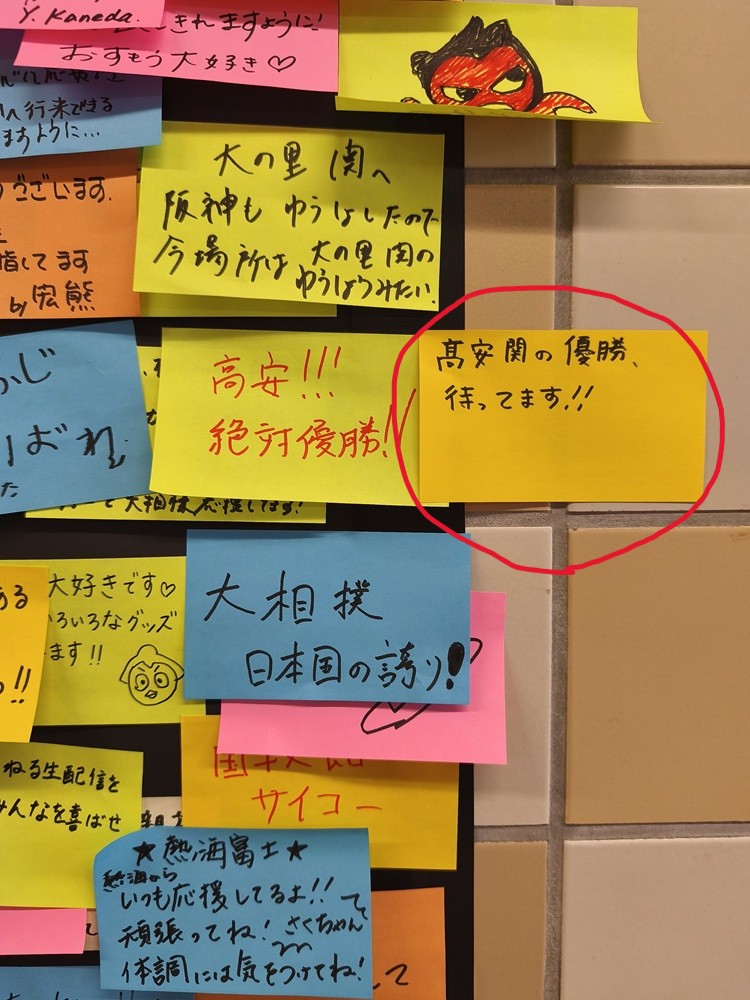 Y. Kaneda.
きれますように!
おすもう大好き♡
へ行来できる
ますように…
大の里関へ
阪神も ゆうしょうしたので
今場所は 大の里関の
ゆうしょうみたい.
ございます.
指してます
by 宏熊
高安!!!
絶対優勝!!
高安関の優勝、
待ってます!!
ふじ
ばれ
た
大相撲応援してます!
大好きです♡
いろいろなグッズ
ます!!
ある
!!
大相撲
日本国の誇り!
サイコー
ねる生配信を
みんなを喜ばせ
★熱海富士★
熱海から
いつも応援してるよ!!
頑張ってね! さくちゃん
体調には気をつけてね!
て